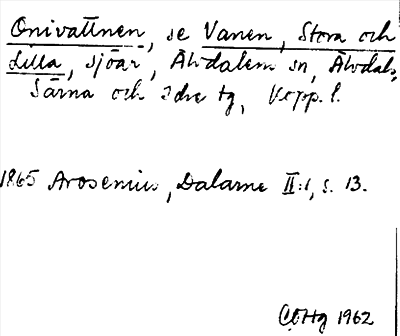 Onivattnen, se Vanen, Stora och
Lilla, sjöar, Älvdalens sn, Älvdals,
Särna och Idre tg, Kopp. l.
1865 Arosenius, Dalarne II:1, s. 13.
1962